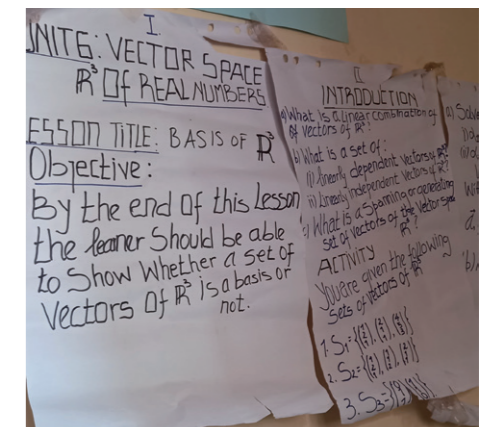 I.
UNIT6: VECTOR SPACE
R³ Of REAL NUMBERS
LESSON TITLE: BASIS OF R³
Objective:
By the end of this Lesson
the learner Should be able
to Show Whether a set of
Vectors Of R³ is a basis or
not.
II
INTRODUCTION
a) What is a linear combination of
of vectors of R³?
b) What is a set of:
(i) linearly dependent vectors of R³?
ii) linearly independent Vectors of R³?
c) What is a spanning or generating
set of vectors of the vector space
R³?
ACTIVITY
You are given the following
sets of vectors of R³
1. S₁=
2. S₂=
3. S₃=
a) Solve